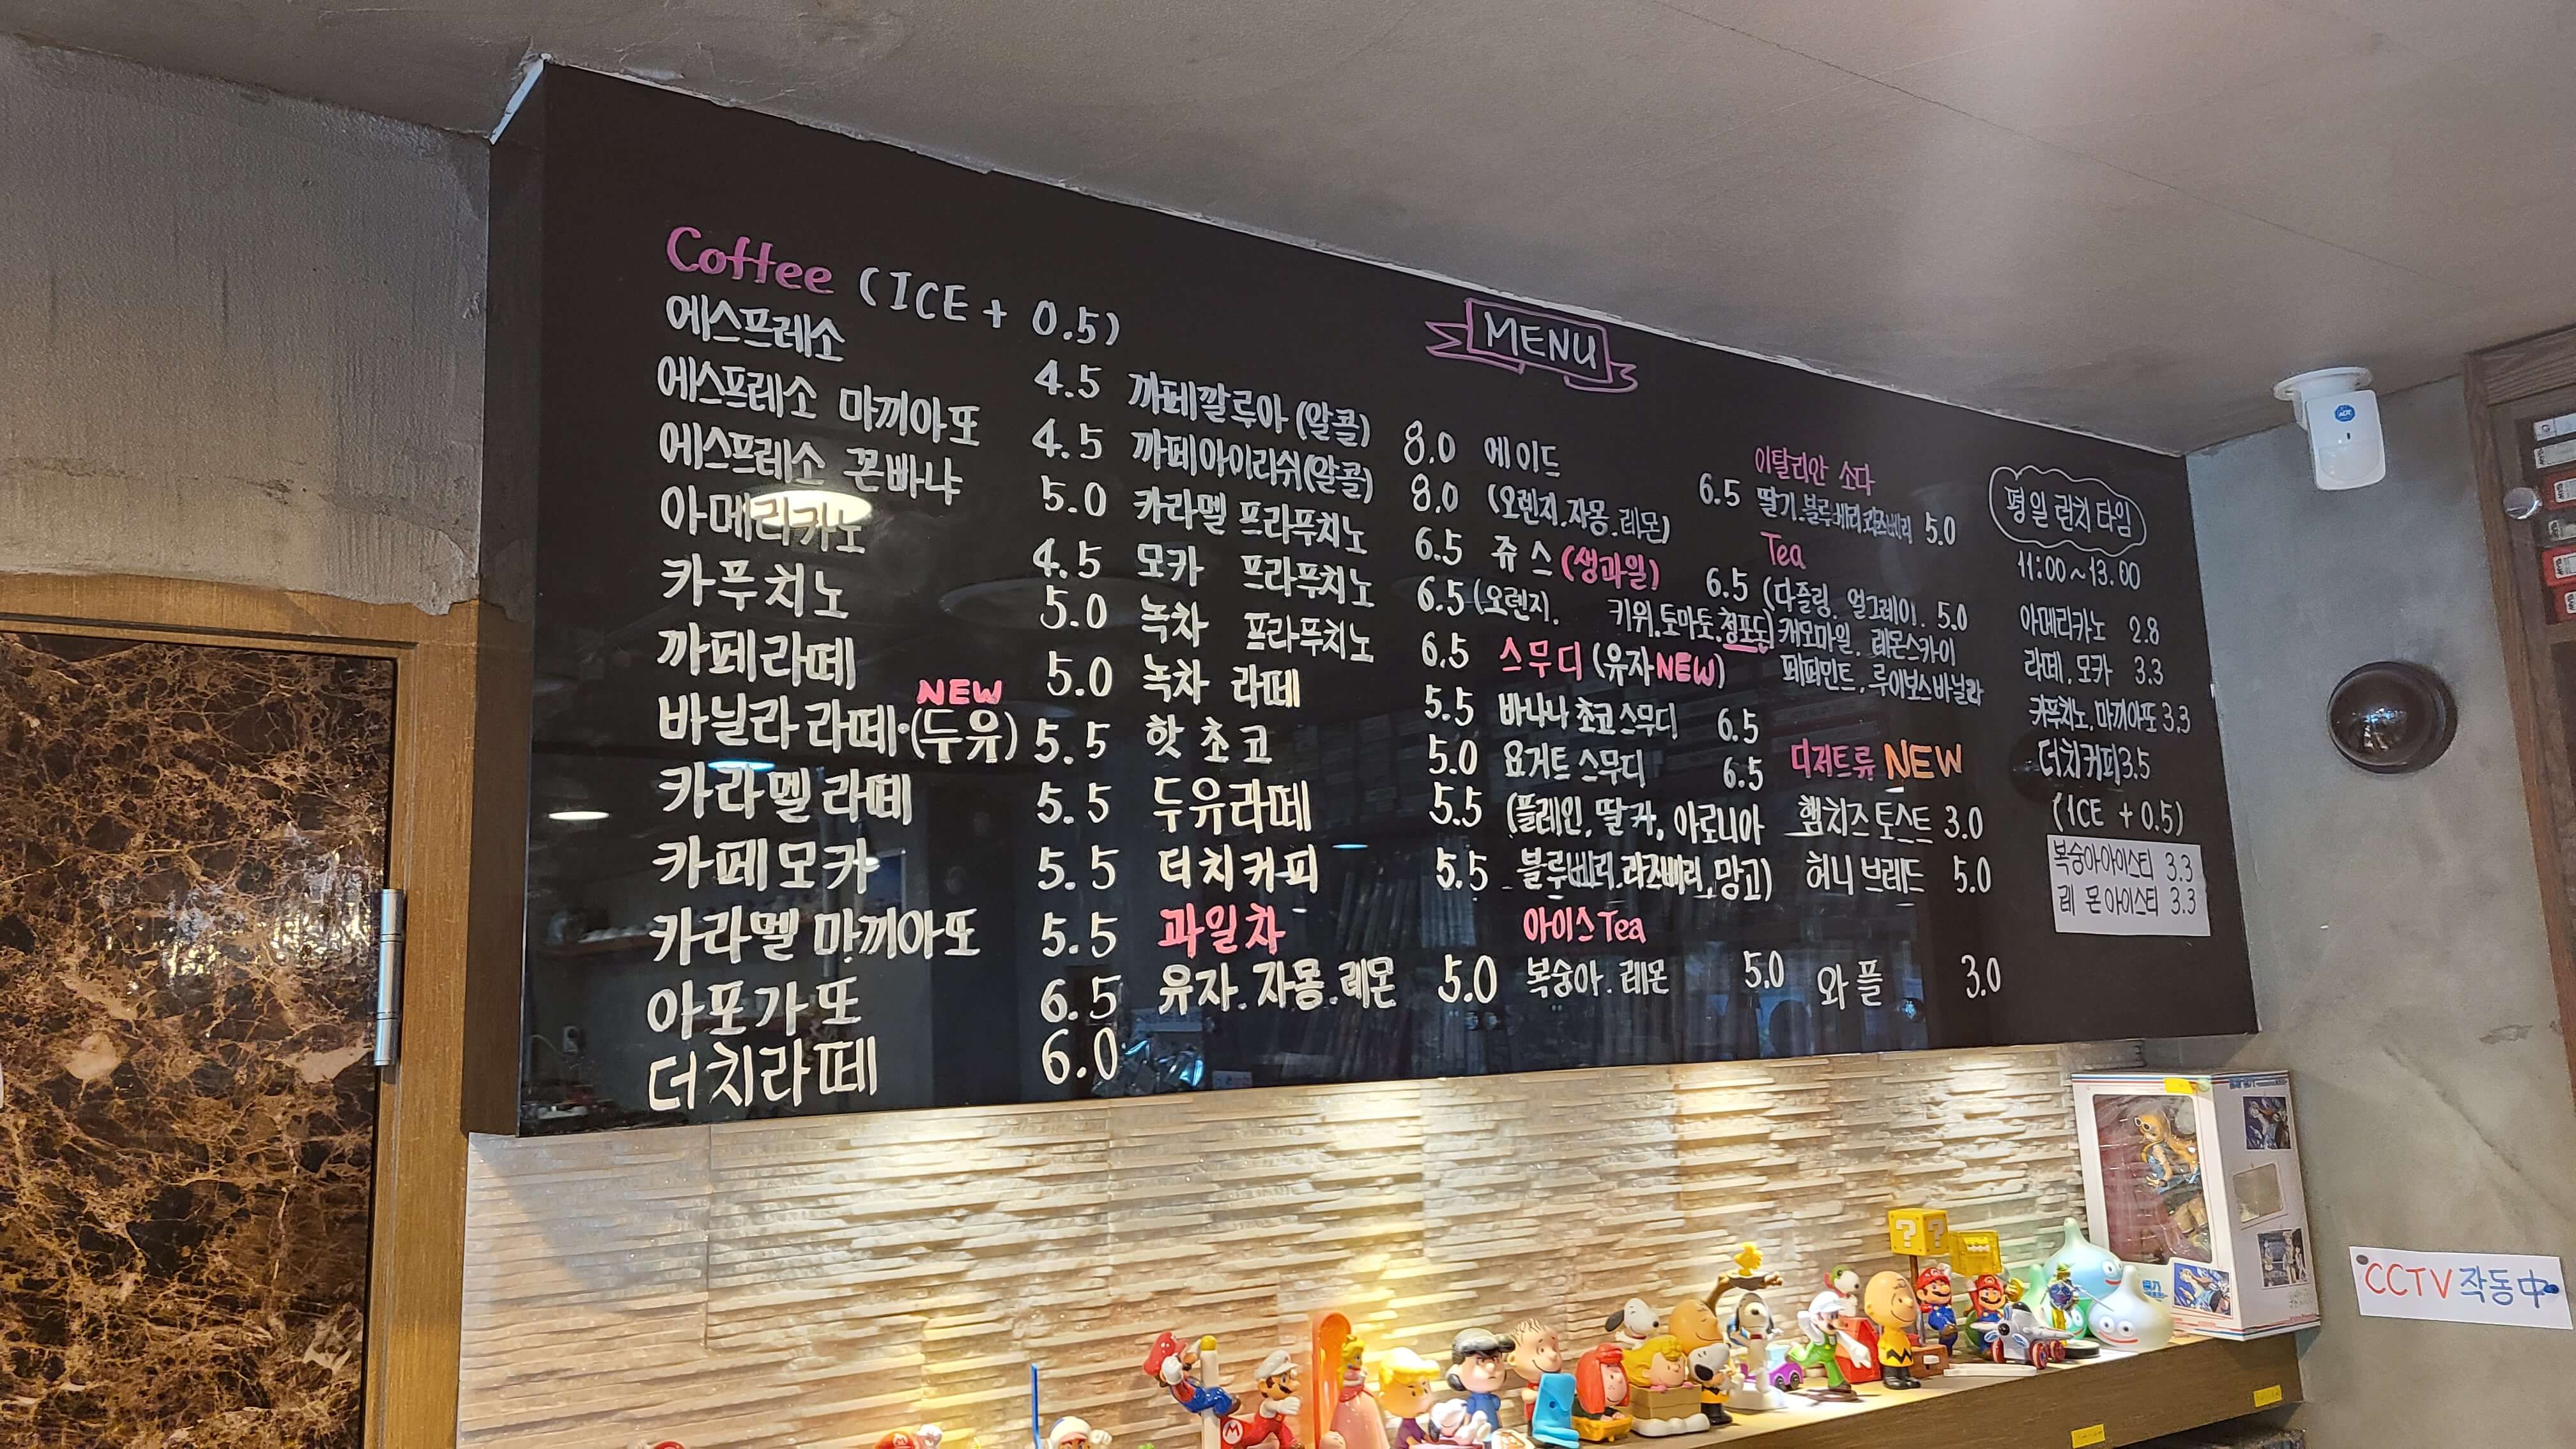 MENU
Coffee (ICE + 0.5)
에스프레소 4.5
에스프레소 마끼아또 4.5
에스프레소 꼰빠냐 5.0
아메리카노 4.5
카푸치노 5.0
까페라떼 5.0
NEW
바닐라 라떼·(두유) 5.5
카라멜라떼 5.5
카페모카 5.5
카라멜 마끼아또 5.5
아포가또 6.5
더치라떼 6.0
까페깔루아 (알콜) 8.0
까페아이리쉬(알콜) 8.0
카라멜 프라푸치노 6.5
모카 프라푸치노 6.5
녹차 프라푸치노 6.5
녹차 라떼 5.5
핫 초코 5.0
두유라떼 5.5
더치커피 5.5
과일차
유자.자몽.레몬 5.0
에이드 6.5
(오렌지.자몽.레몬)
쥬스(생과일) 6.5
(오렌지. 키위.토마토.청포도)
스무디(유자NEW)
바나나 초코스무디 6.5
요거트 스무디 6.5
(플레인, 딸기, 아로니아
블루베리.라즈베리.망고)
아이스Tea
복숭아.레몬 5.0
이탈리안 소다
딸기.블루베리.라즈베리 5.0
Tea
(다즐링. 얼그레이. 5.0
캐모마일. 레몬스카이
페퍼민트. 루이보스바닐라
디저트류 NEW
햄치즈토스트 3.0
허니브레드 5.0
와플 3.0
평일 런치 타임
11:00~13.00
아메리카노 2.8
라떼, 모카 3.3
카푸치노, 마끼아또 3.3
더치커피3.5
(ICE +0.5)
복숭아아이스티 3.3
레몬아이스티 3.3
CCTV작동中